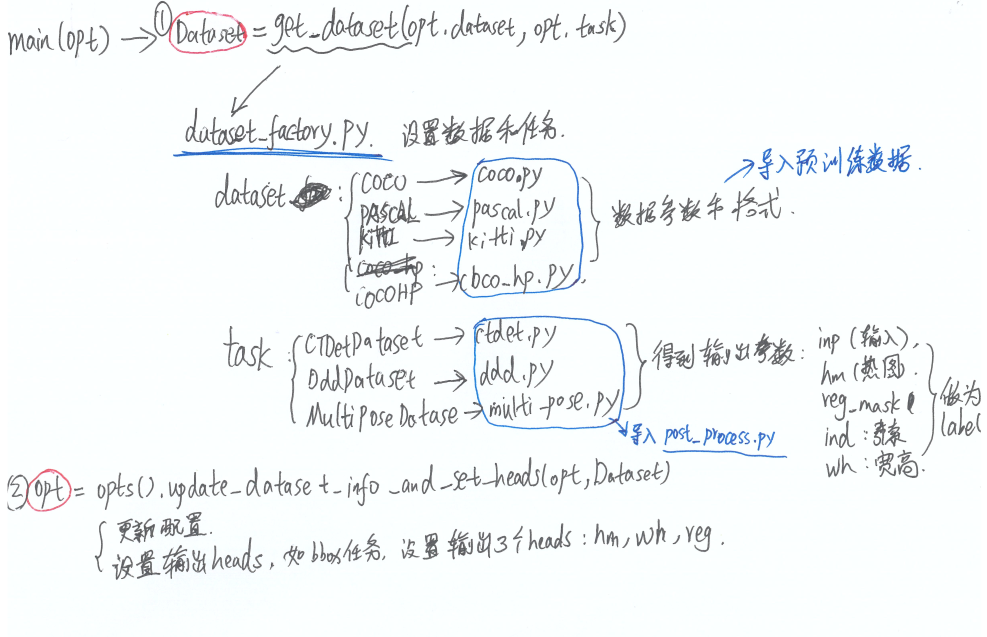 main(opt) → ① Dataset = get_dataset(opt.dataset, opt.task)
dataset_factory.py. 设置数据和任务.
→导入预训练数据.
dataset :
COCO → coco.py
PASCAL → pascal.py
kitti → kitti.py
COCOHP → coco_hp.py
数据参数和格式.
task
CTDetDataset → ctdet.py
DddDataset → ddd.py
MultiPoseDatase → multi_pose.py
得到输出参数:
inp (输入),
hm (热图).
reg_mask (
ind : 索
wh : 宽高.
做为
label
导入 post_process.py
② opt = opts().update_dataset_info_and_set_heads(opt, Dataset)
更新配置.
设置输出heads, 如bbox任务, 设置输出3个heads : hm, wh, reg.